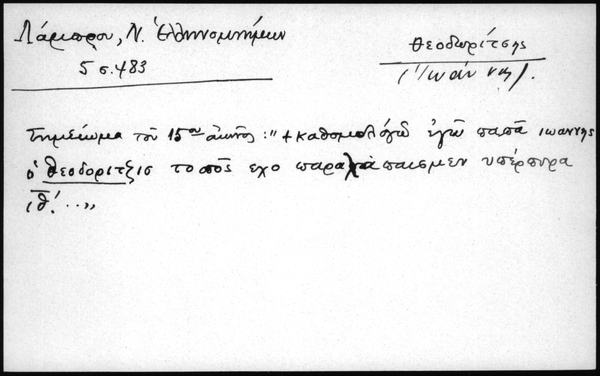 Λάμπρου, Ν. Ἑλληνομνήμων
5 σ. 483
Θεοδωρίτσης
(Ἰωάννης).
Σημείωμα τοῦ 15ου αἰῶνος: "+ καθομολόγῶ ἐγῶ παπᾶ ιωαννης
ὁ θεοδοριτζις το πῶς εχο παρα παισμεν υπέρπυρα
ιθ'...„